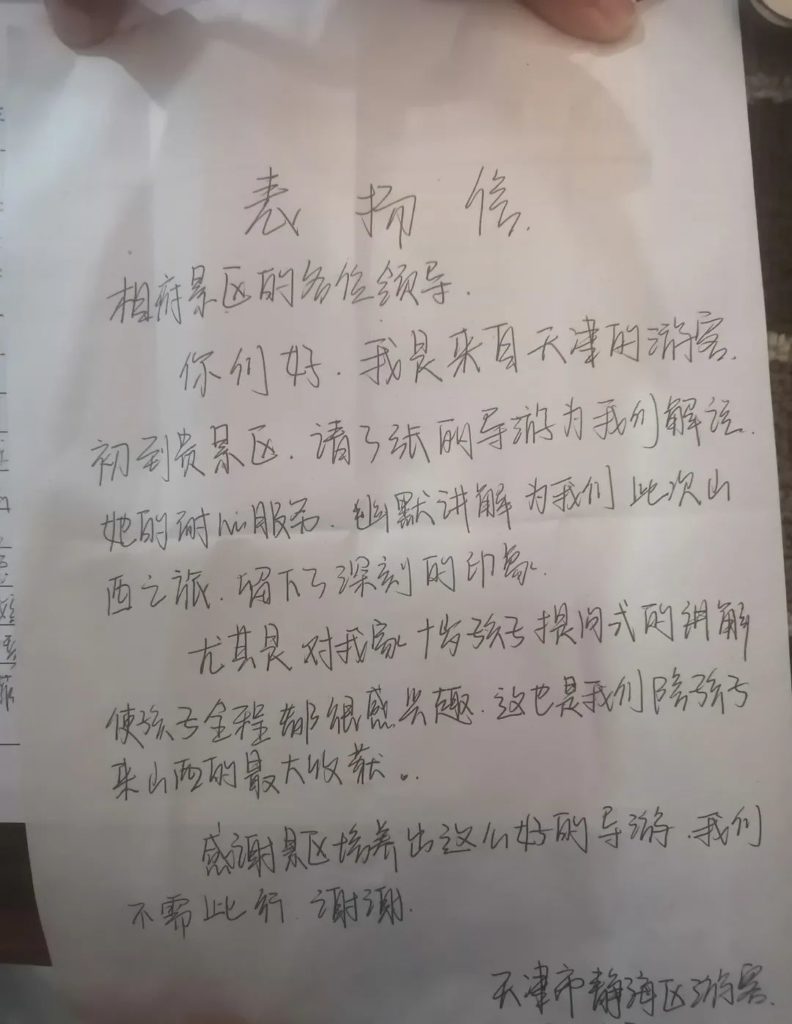 表扬信.
相府景区的各位领导.
你们好.我是来自天津的游客.
初到贵景区.请了张的导游为我们解说.
她的耐心服务.幽默讲解为我们此次山
西之旅.留下了深刻的印象.
尤其是对我家十岁孩子提问式的讲解
使孩子全程都很感兴趣.这也是我们陪孩子
来山西的最大收获。.
感谢景区培养出这么好的导游.我们
不需此行.谢谢.
天津市静海区游客.